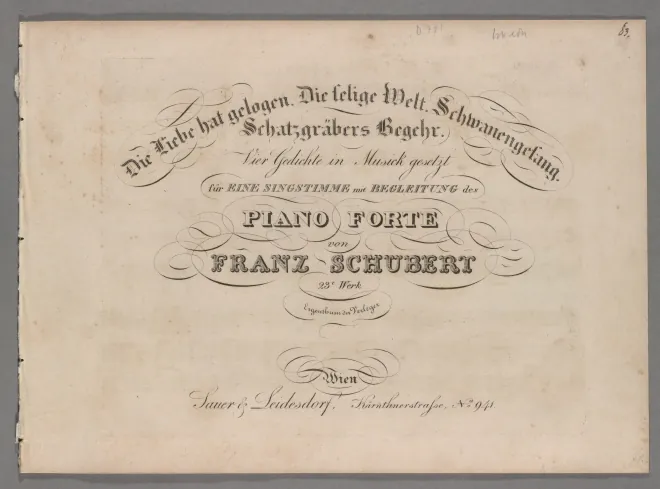 83.
Die Liebe hat gelogen. Die selige Welt. Schwanengesang.
Schatzgräbers Begehr.
Vier Gedichte in Musick gesetzt
für EINE SINGSTIMME mit BEGLEITUNG des
PIANO FORTE
von
FRANZ SCHUBERT
23s Werk
Eigenthum der Verleger
Wien
Sauer & Leidesdorf, Kärnthnerstrasse, No 941.